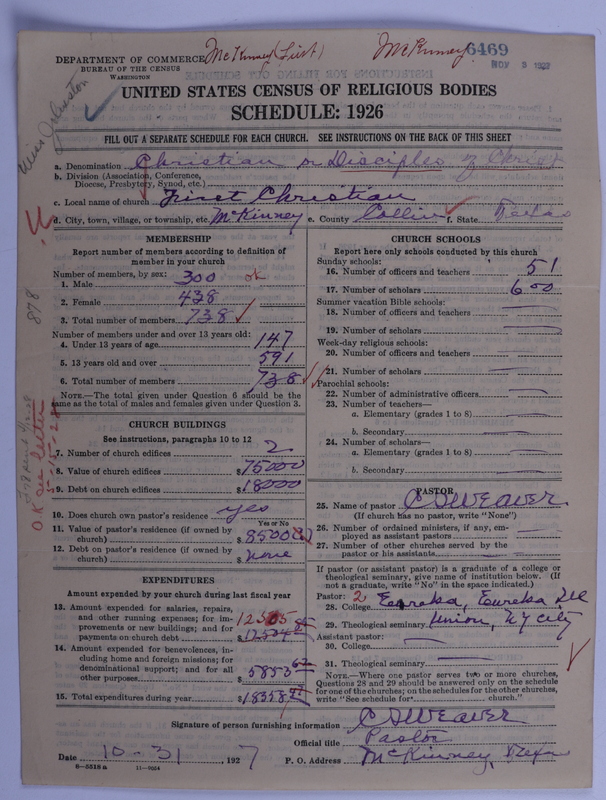 McKinney (First) McKinney 6469
DEPARTMENT OF COMMERCE
BUREAU OF THE CENSUS
WASHINGTON
NOV 3 1927
UNITED STATES CENSUS OF RELIGIOUS BODIES
SCHEDULE: 1926
FILL OUT A SEPARATE SCHEDULE FOR EACH CHURCH. SEE INSTRUCTIONS ON THE BACK OF THIS SHEET
a. Denomination Christian or Disciples of Christ
b. Division (Association, Conference,
Diocese, Presbytery, Synod, etc.)
c. Local name of church First Christian
d. City, town, village, or township, etc. McKinney e. County Collin f. State Texas
MEMBERSHIP
Report number of members according to definition of
member in your church
Number of members, by sex:
1. Male 300 ok
2. Female 438
3. Total number of members 738
Number of members under and over 13 years old:
4. Under 13 years of age 147
5. 13 years old and over 591
6. Total number of members 738
NOTE.—The total given under Question 6 should be the
same as the total of males and females given under Question 3.
CHURCH BUILDINGS
See instructions, paragraphs 10 to 12
7. Number of church edifices 2
8. Value of church edifices $75000
9. Debt on church edifices $18000
10. Does church own pastor's residence? yes
Yes or No
11. Value of pastor's residence (if owned by
church) $8500
12. Debt on pastor's residence (if owned by
church) $none
EXPENDITURES
Amount expended by your church during last fiscal year
13. Amount expended for salaries, repairs,
and other running expenses; for im-
provements or new buildings; and for
payments on church debt $
14. Amount expended for benevolences, in-
cluding home and foreign missions; for
denominational support; and for all
other purposes $5853
15. Total expenditures during year $18358
CHURCH SCHOOLS
Report here only schools conducted by this church
Sunday schools:
16. Number of officers and teachers 51
17. Number of scholars 600
Summer vacation Bible schools:
18. Number of officers and teachers
19. Number of scholars
Week-day religious schools:
20. Number of officers and teachers
21. Number of scholars
Parochial schools:
22. Number of administrative officers
23. Number of teachers—
a. Elementary (grades 1 to 8)
b. Secondary
24. Number of scholars—
a. Elementary (grades 1 to 8)
b. Secondary
PASTOR
25. Name of pastor C S WEAVER
(If church has no pastor, write "None")
26. Number of ordained ministers, if any, em-
ployed as assistant pastors
27. Number of other churches served by the
pastor or his assistants
If pastor (or assistant pastor) is a graduate of a college or
theological seminary, give name of institution below. (If
not a graduate, write "No" in the space indicated.)
Pastor: 2
28. College Eureka, Eureka Ill
29. Theological seminary Union, N Y City
Assistant pastor:
30. College
31. Theological seminary
NOTE.—Where one pastor serves two or more churches,
Questions 28 and 29 should be answered only on the schedule
for one of the churches; on the schedules for the other churches,
write "See schedule for church."
Signature of person furnishing information C S WEAVER
Official title Pastor
Date 10-31 1927 P. O. Address McKinney, Texas
6—5318 a 11—9024
Miss Johnston
878
OK see letter
5-15-28